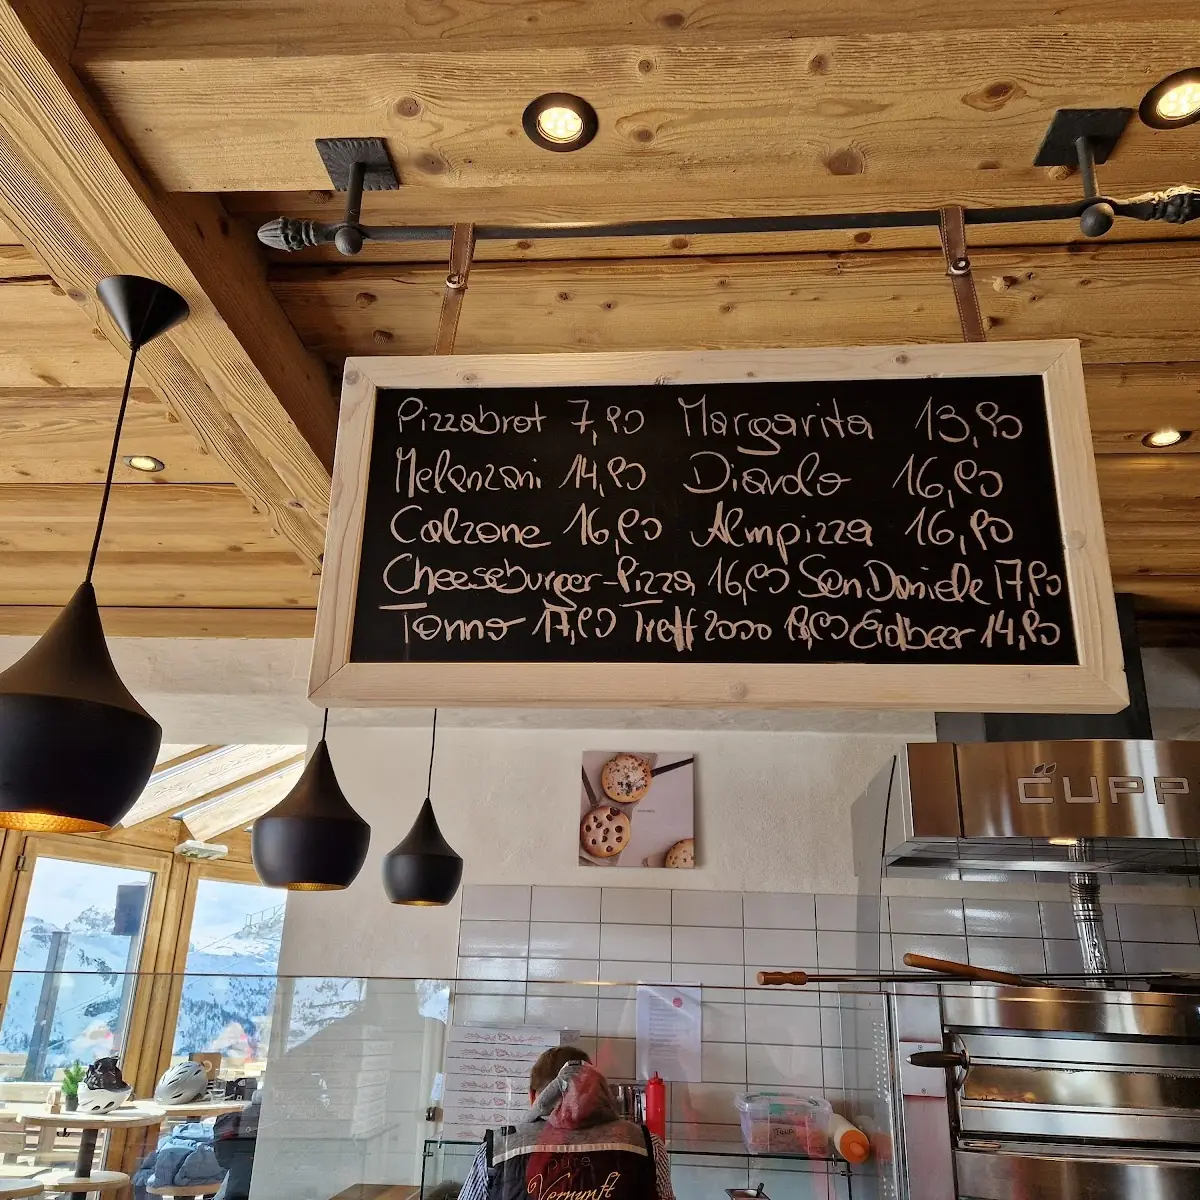 Pizzabrot 7,90 Margarita 13,90
Melanzani 14,90 Diavolo 16,90
Calzone 16,90 Almpizza 16,90
Cheeseburger-Pizza 16,90 San Daniele 17,90
Tonno 17,90 Treff 2000 Erdbeer 14,90
CUPP
Vernunft